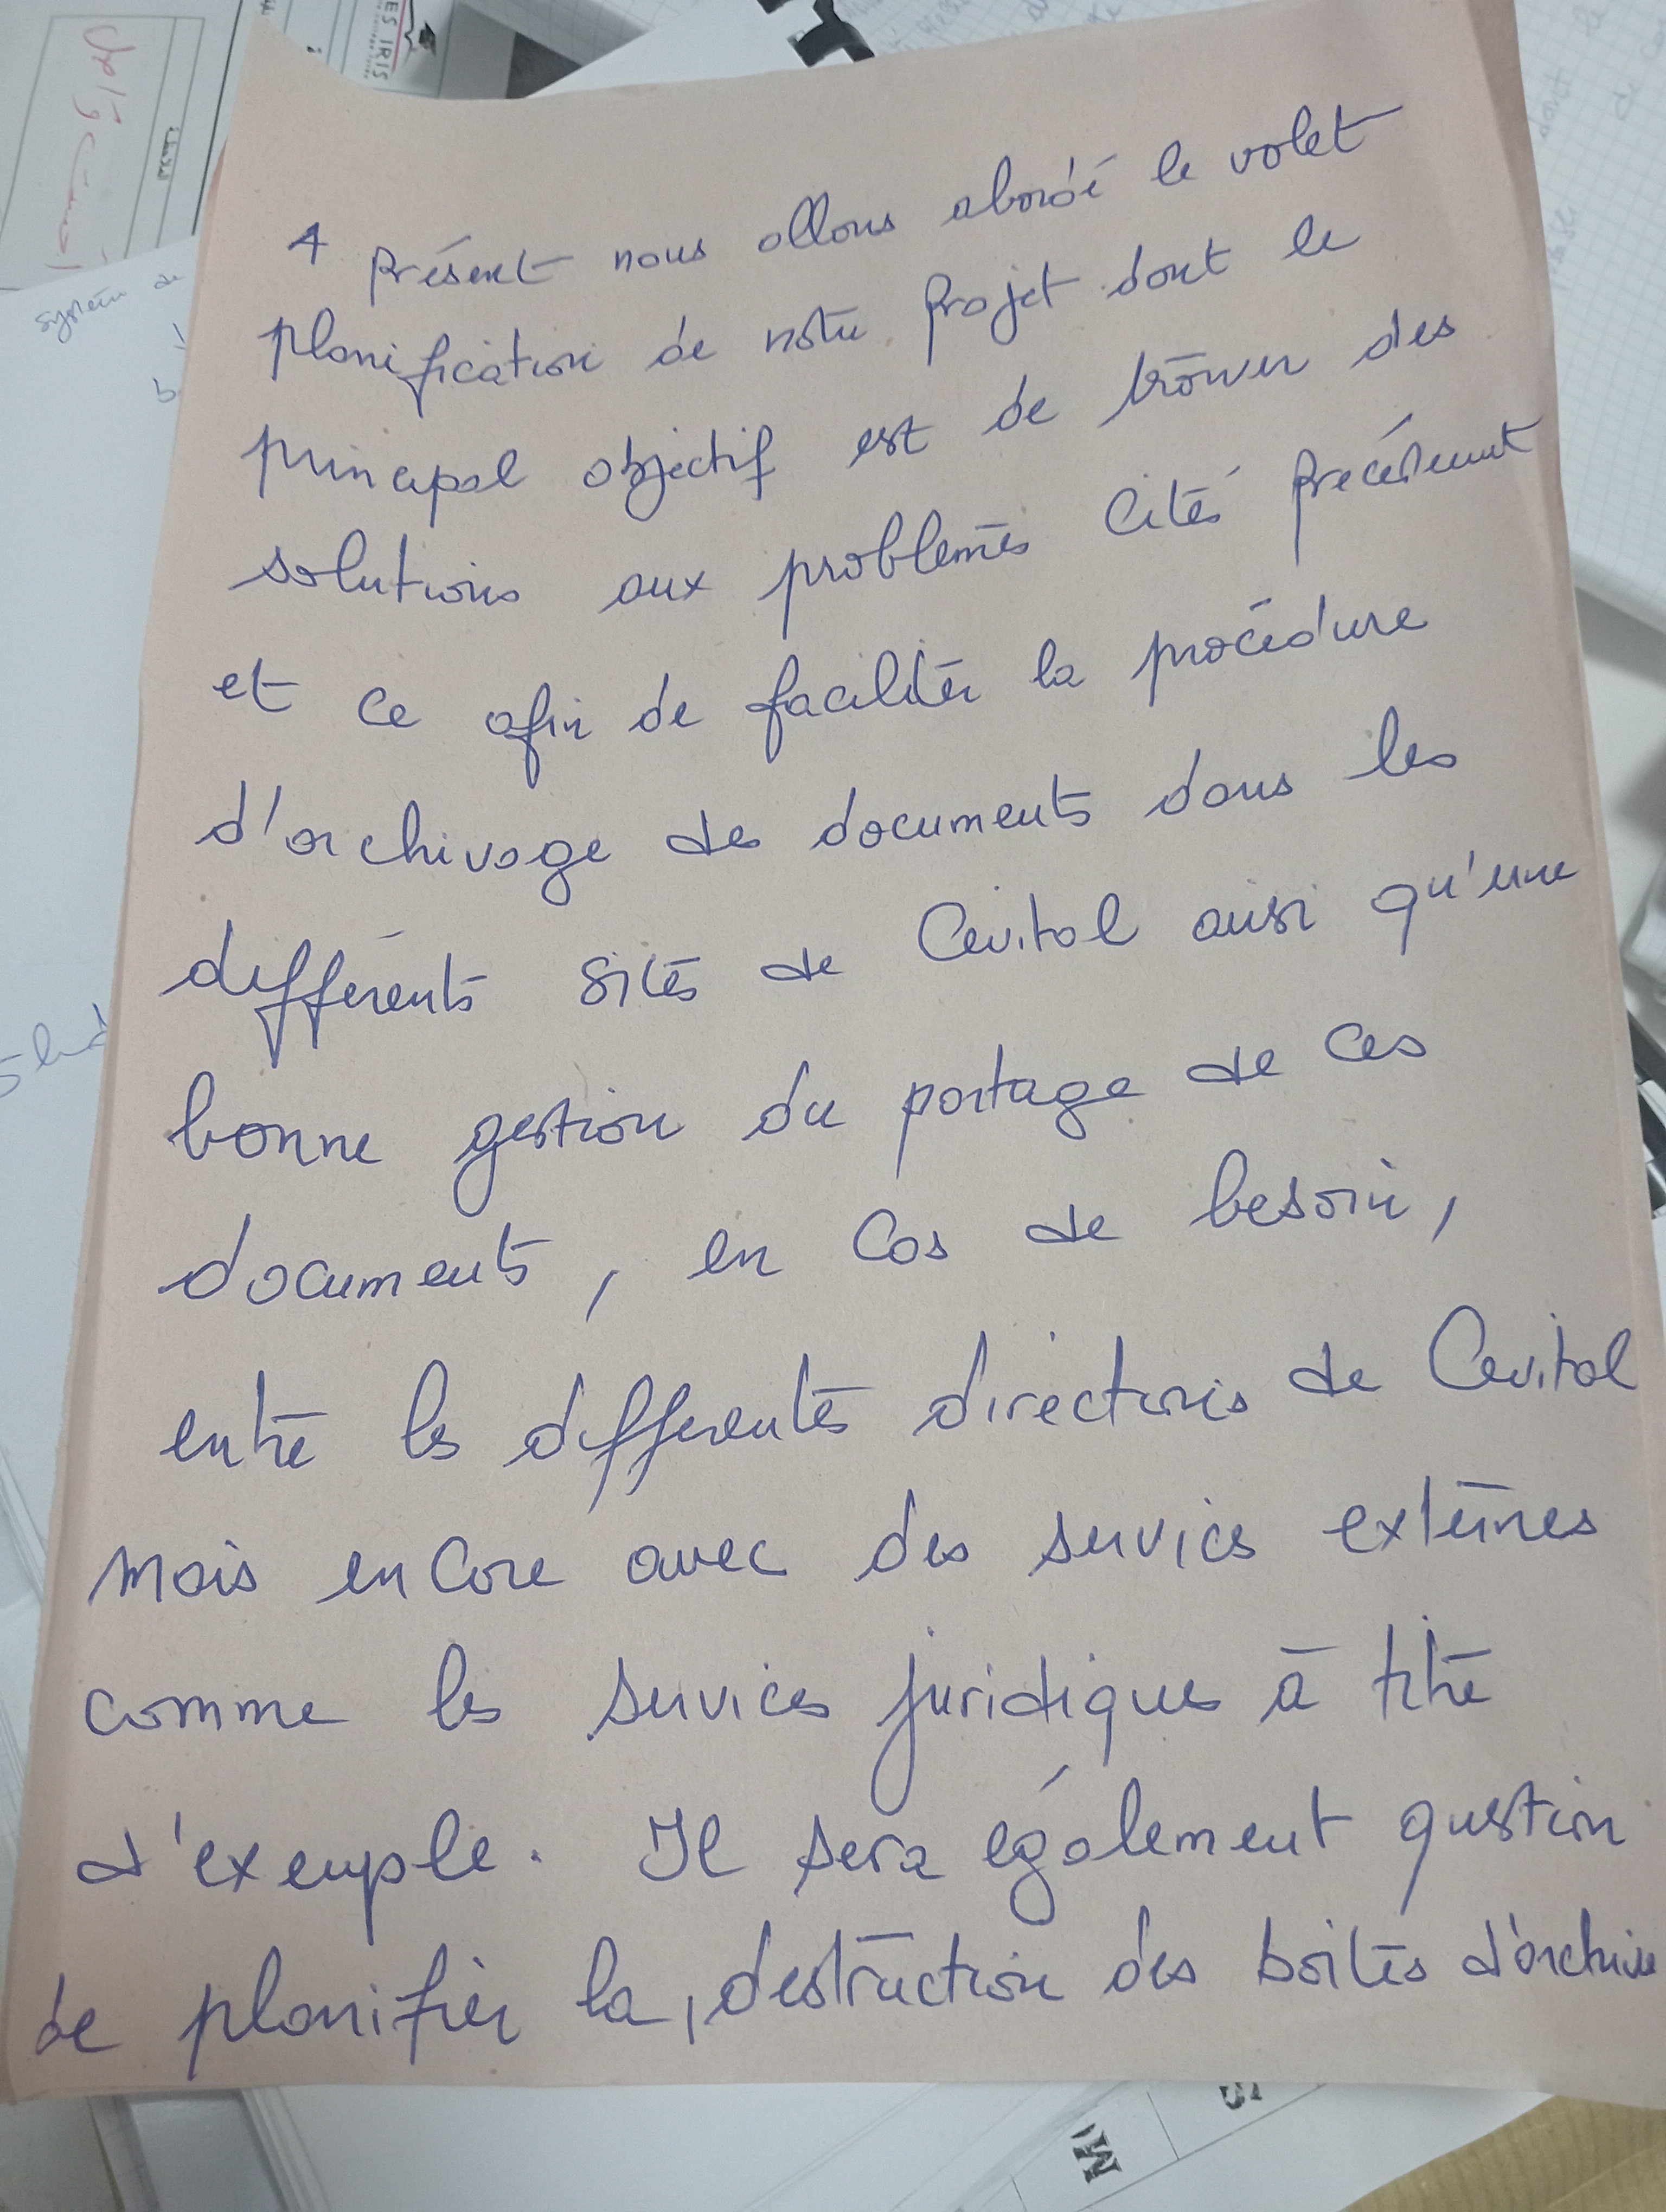 A présent nous allons abordé le volet
planification de notre projet dont le
principal objectif est de trouver des
solutions aux problèmes cités précédemment
et ce afin de faciliter la procédure
d'archivage des documents dans les
différents sites de Cevital ainsi qu'une
bonne gestion du partage de ces
documents, en cas de besoin,
entre les differentes directions de Cevital
mais encore avec des services externes
comme les services juridiques à titre
d'exemple. Il sera également question
de planifier la destruction des boites d'archive
système de
ES IRIS